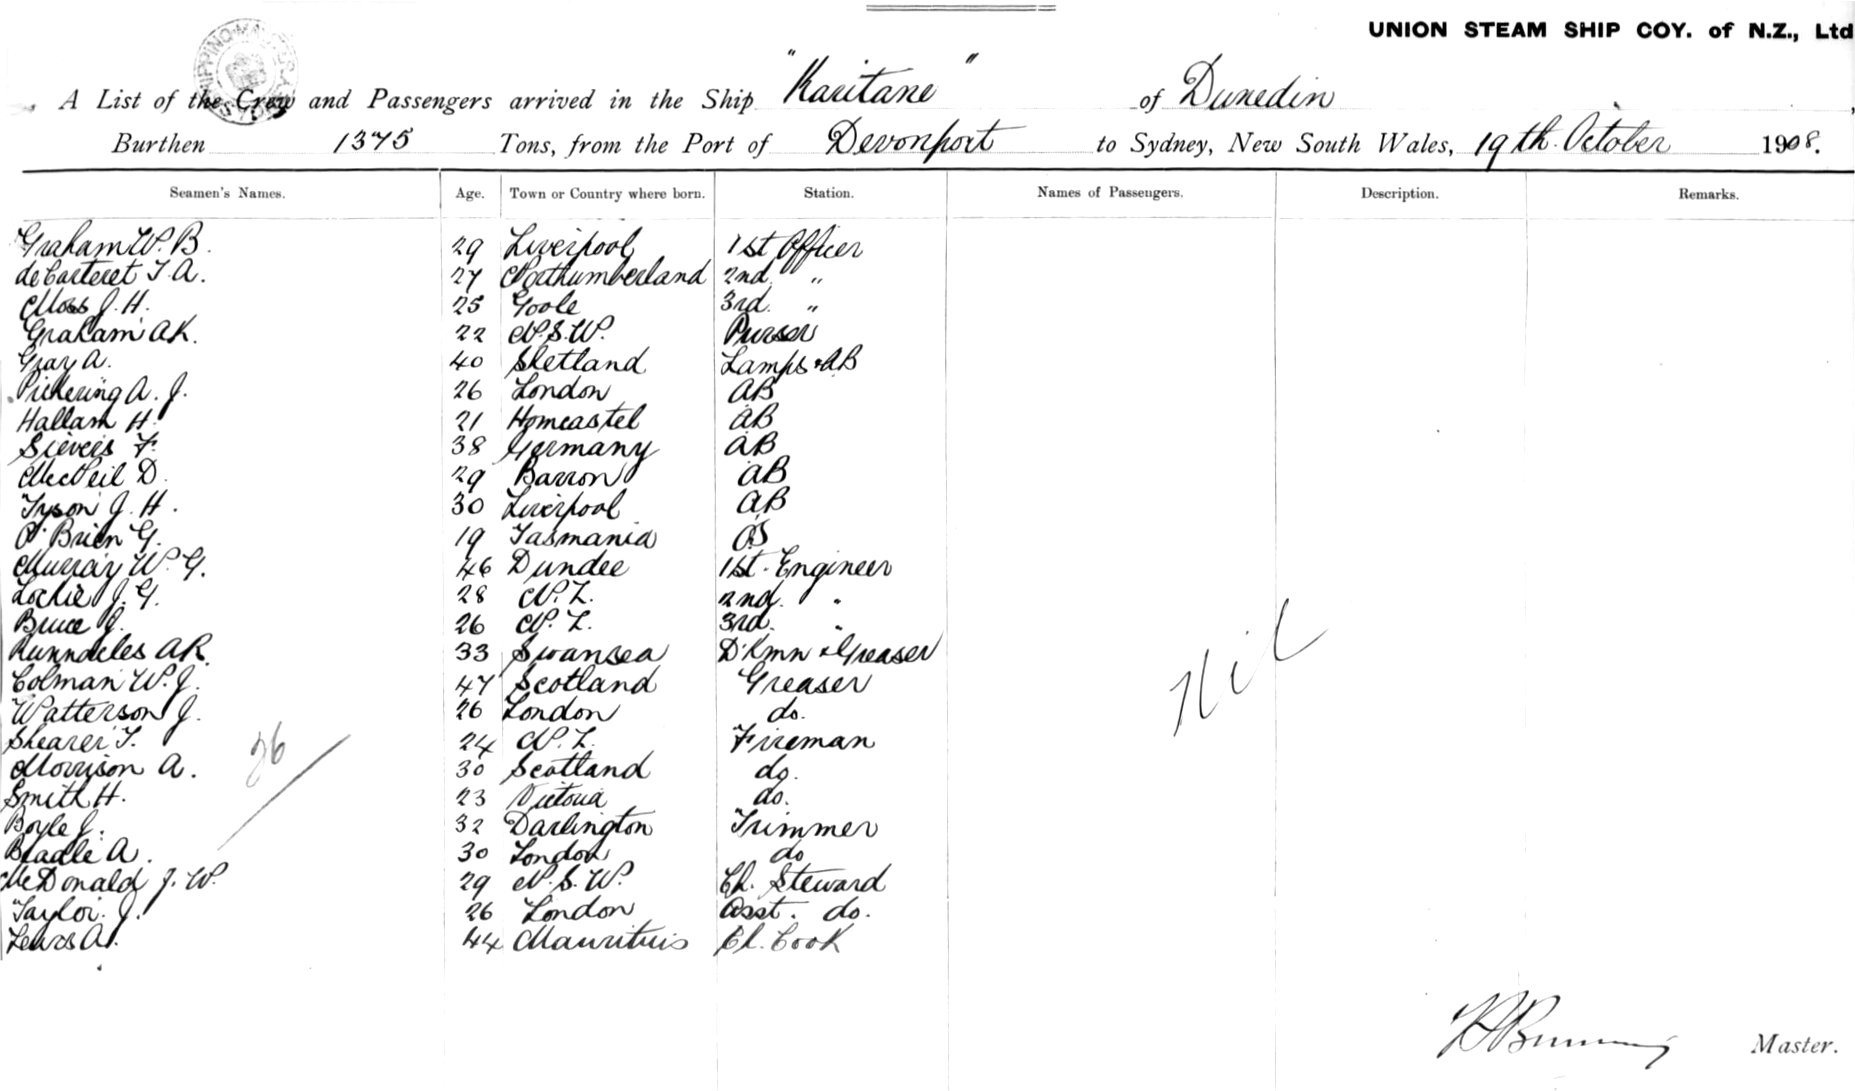 UNION STEAM SHIP COY. of N.Z., Ltd
A List of the Crew and Passengers arrived in the Ship "Karitane" of Dunedin
Burthen 1375 Tons, from the Port of Devonport to Sydney, New South Wales, 19th. October 1908.
Seamen's Names. Age. Town or Country where born. Station. Names of Passengers. Description. Remarks.
Graham W. B. 29 Liverpool 1st Officer
de Carteret T. A. 27 Northumberland 2nd "
Moss J. H. 25 Goole 3rd. "
Graham A K. 22 N. S. W. Purser
Gray A. 40 Shetland Lamps & AB
Pickering A. J. 26 London AB
Hallam H. 21 AB
Sievers F. 38 Germany AB
MacNeil D. 29 AB
Tyson J. H. 30 Liverpool AB
O'Brien G. 19 Tasmania OS
Murray W. G. 46 Dundee 1st. Engineer
Lockie J. G. 28 N. Z. 2nd. "
Bruce J. 26 N. Z. 3rd. "
A R. 33 Swansea D'Kmn & Greaser
Colman W. J. 47 Scotland Greaser
Watterson J. 26 London do.
Shearer T. 24 N. Z. Fireman
Morrison A. 30 Scotland do.
Smith H. 23 Victoria do.
Boyle J. 32 Darlington Trimmer
A. 30 London do
McDonald J. W. 29 N. S. W. Ch. Steward
Taylor. J. 26 London Asst. do.
Lewis A. 44 Mauritius Ch. Cook
26
Nil
Master.